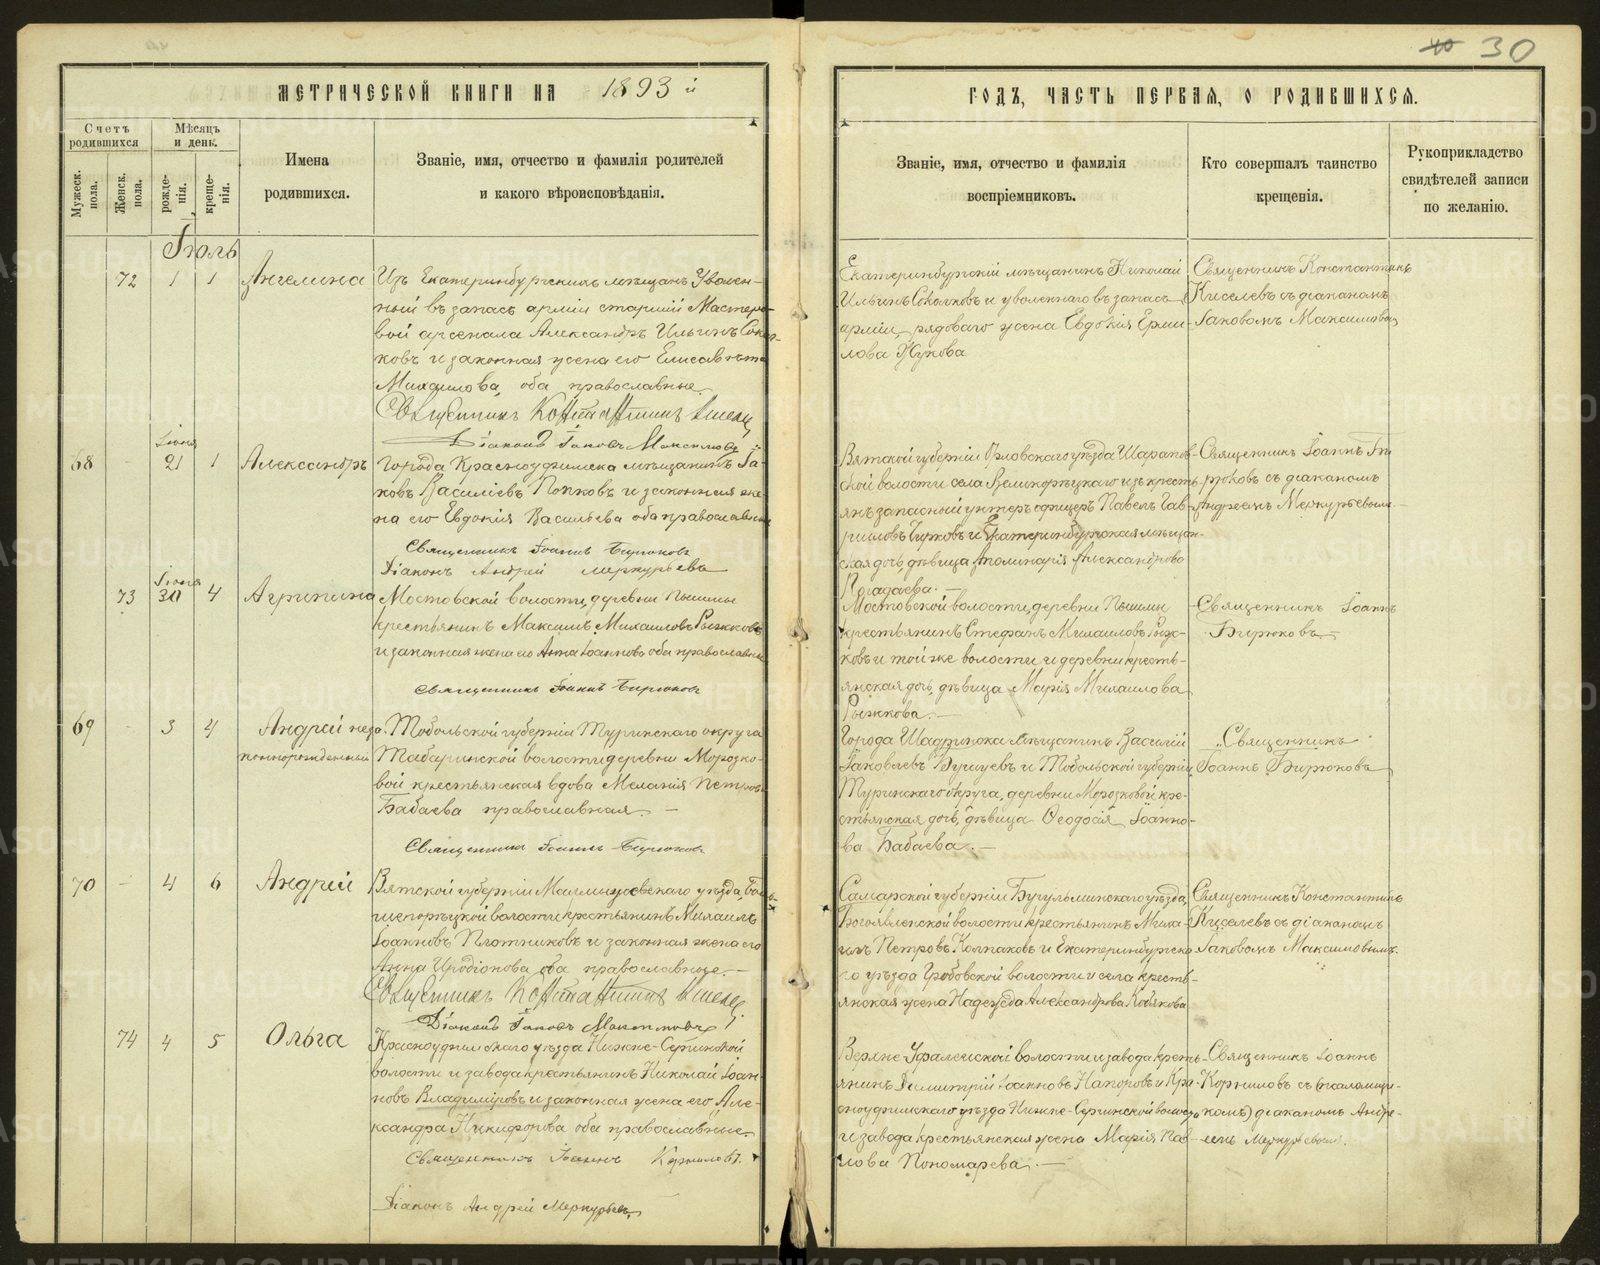 30
МЕТРИЧЕСКОЙ КНИГИ НА 1893 й
ГОДЪ, ЧАСТЬ ПЕРВАЯ, О РОДИВШИХСЯ.
Счетъ родившихся
Мужеск. пола.
Женск. пола.
Мѣсяцъ и день.
рожденія.
крещенія.
Имена
родившихся.
Званіе, имя, отчество и фамилія родителей
и какого вѣроисповѣданія.
Званіе, имя, отчество и фамилія
воспріемниковъ.
Кто совершалъ таинство
крещенія.
Рукоприкладство
свидѣтелей записи
по желанію.
Іюль
72 1 1 Ангелина
Изъ Екатеринбургскихъ мѣщанъ Уволен-
ный въ запасъ арміи старшій Мастеро-
вой арсенала Александръ Ильинъ Сокол-
ковъ и законная жена его Елисавета
Михаилова, оба православные
Священникъ Константинъ
Діаконъ Іаковъ Максимовъ
Екатеринбургскій мѣщанинъ Николай
Ильинъ Соколковъ и уволеннаго въ запасъ
арміи рядоваго жена Евдокія Ерми-
лова Жукова
Священникъ Константинъ
Киселевъ съ діакономъ
Іаковомъ Максимовымъ
68 Іюня 21 1 Александръ
Города Красноуфимска мѣщанинъ Іа-
ковъ Василіевъ Попковъ и законная же-
на его Евдокія Васильева оба православные
Священникъ Іоаннъ Бирюковъ
Діаконъ Андрей Меркурьевъ
Вятской губерніи Орловскаго уѣзда Шарапов-
ской волости села Великорѣцкаго изъ кресть-
янъ запасный унтеръ офицеръ Павелъ Гав-
риловъ и Екатеринбургская мѣщан-
ская дочь, дѣвица Аполинарія Александрова
Погадаева.
Священникъ Іоаннъ Би-
рюковъ съ діакономъ
Андреемъ Меркурьевымъ.
73 Іюня 30 4 Агрипина
Мостовской волости, деревни Пышмы
крестьянинъ Максимъ Михаиловъ Рыжковъ
и законная жена его Анна Іоаннова оба православные
Священникъ Іоаннъ Бирюковъ
Мостовской волости, деревни Пышмы
крестьянинъ Стефанъ Михаиловъ Рыж-
ковъ и той же волости и деревни кресть-
янская дочь, дѣвица Марія Михаилова
Рыжкова.
Священникъ Іоаннъ
Бирюковъ
69 3 4 Андрей неза-
коннорожденный
Тобольской губерніи Туринскаго округа
Табаринской волости деревни Морозко-
вой крестьянская вдова Меланія Петрова
Бабаева православная.
Священникъ Іоаннъ Бирюковъ
Города Шадринска мѣщанинъ Василій
Іаковлевъ и Тобольской губерніи
Туринскаго округа, деревни Морозковой кре-
стьянская дочь, дѣвица Ѳеодосія Іоанно-
ва Бабаева.
Священникъ
Іоаннъ Бирюковъ
70 4 6 Андрей
Вятской губерніи Малмыжевскаго уѣзда,
волости крестьянинъ Михаилъ
Іоанновъ Плотниковъ и законная жена его
Анна Иродіонова, оба православные.
Священникъ Константинъ
Діаконъ Іаковъ Максимовъ
Самарской губерніи Бугульминскаго уѣзда,
Богоявленской волости крестьянинъ Миха-
илъ Петровъ Колпаковъ и Екатеринбургска-
го уѣзда Гробовской волости и села кресть-
янская жена Надежда Александрова Кобякова
Священникъ Константинъ
Киселевъ съ діакономъ
Іаковомъ Максимовымъ.
74 4 5 Ольга
Красноуфимскаго уѣзда Нижне-Сергинской
волости и завода крестьянинъ Николай Іоан-
новъ Владиміровъ и законная жена его Але-
ксандра Никифорова оба православные.
Священникъ Іоаннъ Корниловъ.
Діаконъ Андрей Меркурьевъ
Верхне-Уфалейской волости и завода кресть-
янинъ Димитрій Іоанновъ Напоровъ и Кра-
сноуфимскаго уѣзда Нижне-Сергинской волости
и завода крестьянская жена Марія Пав-
лова Пономарева.
Священникъ Іоаннъ
Корниловъ съ (псаломщи-
комъ) діакономъ Андре-
емъ Меркурьевымъ.
METRIKI.GASO-URAL.RU